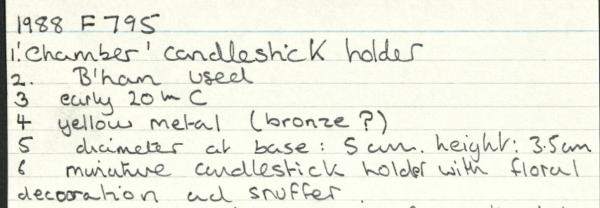 1988 F 795
1. 'Chamber' candlestick holder
2. B'ham used
3 early 20th C
4 yellow metal (bronze?)
5 diameter at base: 5 cm. height: 3.5cm
6 miniature candlestick holder with floral
decoration and snuffer.